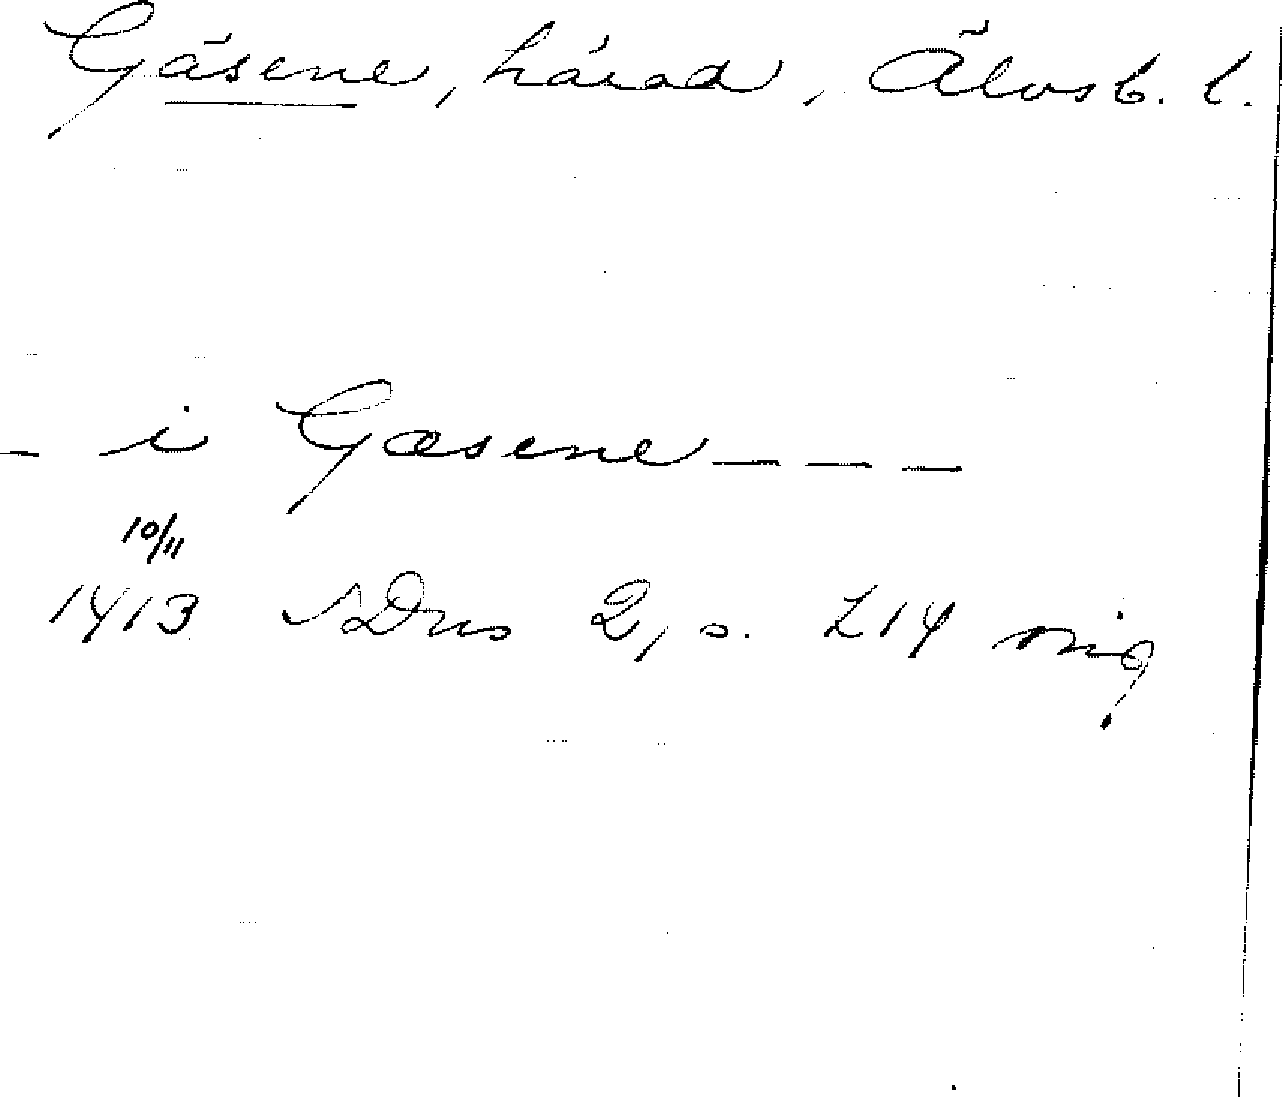 Gäsene, härad, Älvsb. l.
_ i Gæsene _ _ _
10/11
1413 SDns 2, s. 714 orig